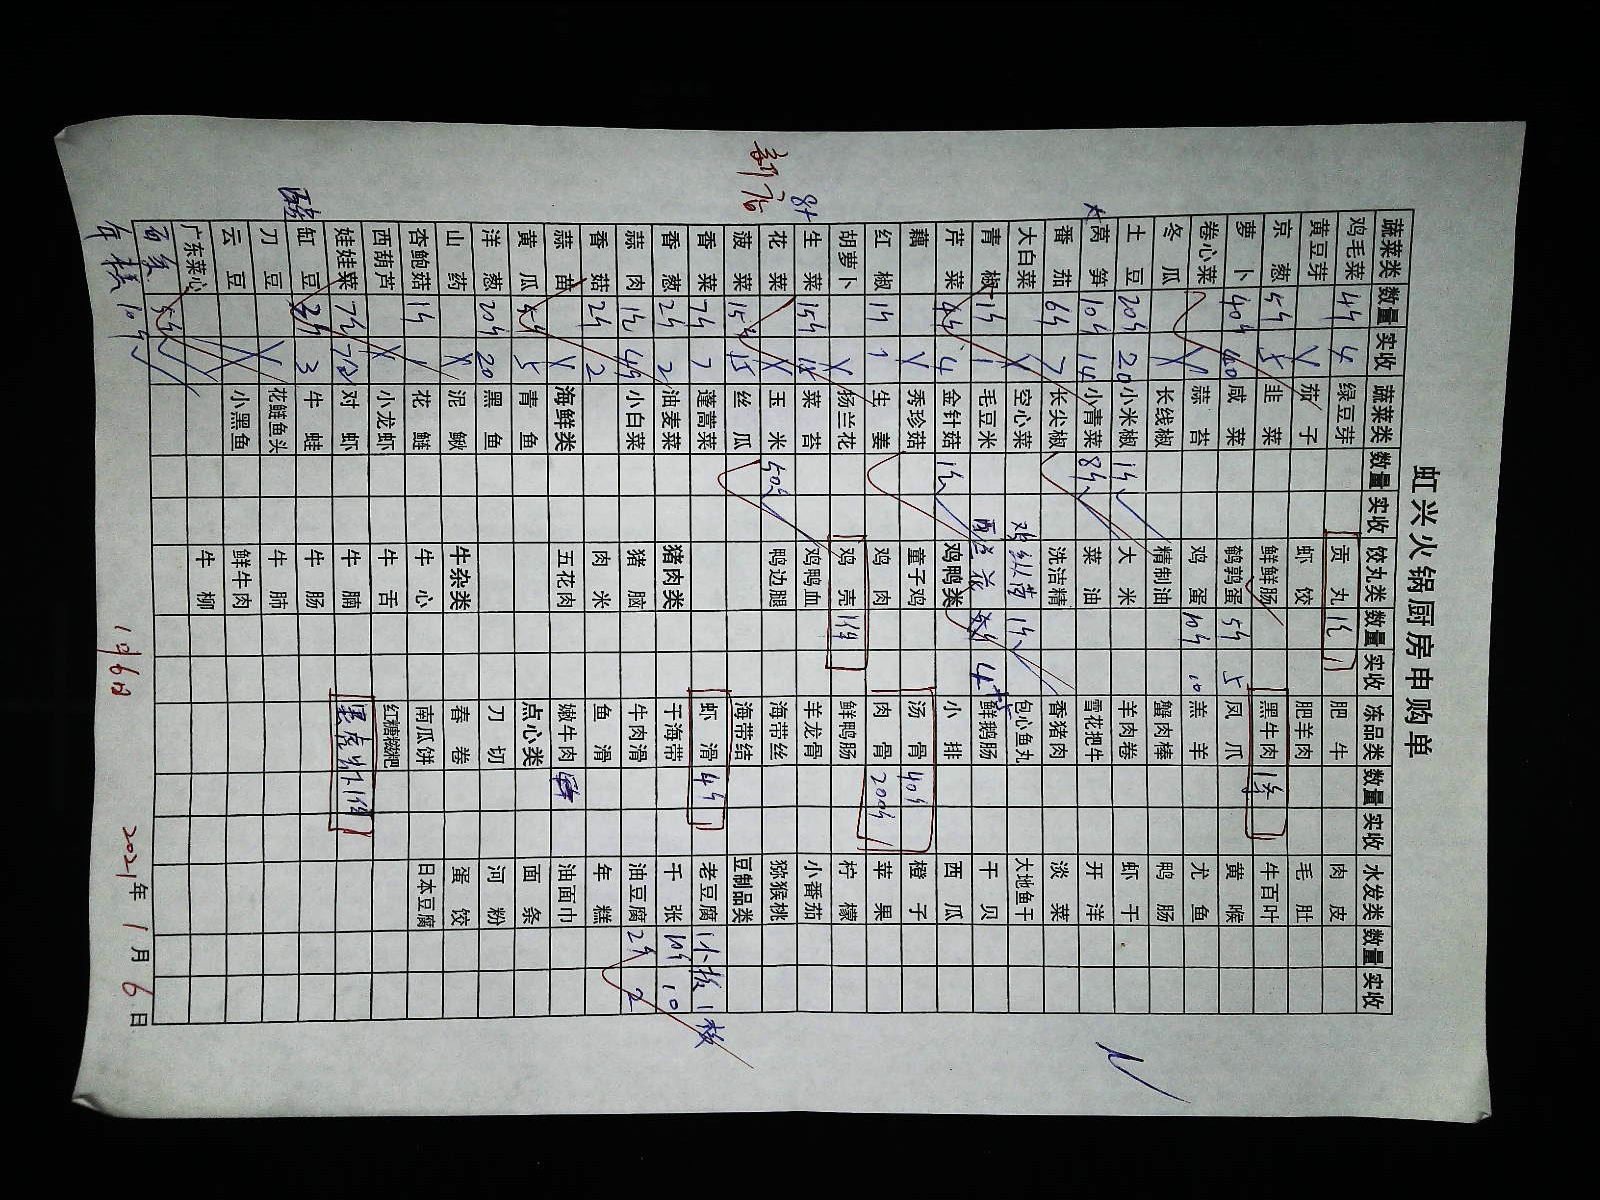 虹兴火锅厨房申购单
新店
蔬菜类 数量 实收 蔬菜类 数量 实收 饺丸类 数量 实收 冻品类 数量 实收 水发类 数量 实收
鸡毛菜 4斤 4 绿豆芽 贡丸 1包 肥牛 肉皮
黄豆芽 茄子 虾饺 肥羊肉 毛肚
京葱 5斤 5 韭菜 鲜鲜肠 黑牛肉 1件 牛百叶
萝卜 40斤 40 咸菜 鹌鹑蛋 5斤 5 凤爪 黄喉
卷心菜 蒜苔 鸡蛋 10斤 10 羔羊 尤鱼
冬瓜 长线椒 精制油 蟹肉棒 鸭肠
土豆 20斤 20 小米椒 1斤 大米 羊肉卷 虾干
莴笋 10斤 14 小青菜 8斤 菜油 雪花把牛 开洋
番茄 6斤 7 长尖椒 洗洁精 香猪肉 淡菜
大白菜 空心菜 鸡纵菌 1包 包心鱼丸 大地鱼干
青椒 1斤 1 毛豆米 西兰花 4 鲜鹅肠 干贝
芹菜 4斤 4 金针菇 1包 鸡鸭类 小排 西瓜
藕 秀珍菇 童子鸡 汤骨 40斤 橙子
红椒 1斤 1 生姜 鸡肉 肉骨 200斤 苹果
胡萝卜 杨兰花 鸡壳 1件 鲜鸭肠 柠檬
8斤
生菜 15斤 15 菜苔 鸡鸭血 羊龙骨 小番茄
花菜 玉米 50斤 鸭边腿 海带丝 猕猴桃
菠菜 15斤 15 丝瓜 海带结 豆制品类
香菜 7斤 7 蓬蒿菜 虾滑 4斤 老豆腐 1小板 1板
香葱 2斤 2 油麦菜 猪肉类 干海带 千张 10斤 10
蒜肉 1包 小白菜 猪脑 牛肉滑 油豆腐 2斤 2
香菇 2斤 2 肉米 鱼滑 年糕
蒜苗 海鲜类 五花肉 嫩牛肉 油面巾
黄瓜 5斤 5 青鱼 点心类 面条
洋葱 20斤 20 黑鱼 刀切 河粉
山药 泥鳅 牛杂类 春卷 蛋饺
杏鲍菇 1斤 1 花鲢 牛心 南瓜饼 日本豆腐
西葫芦 小龙虾 牛舌 红糖糍粑
娃娃菜 7包 7包 对虾 牛腩 黑虎虾 1件
缸豆 3斤 3 牛蛙 牛肠
刀豆 花鲢鱼头 牛肺
云豆 小黑鱼 鲜牛肉
广东菜心 牛柳
年糕 10斤
1月6日
2021年 1月 6日